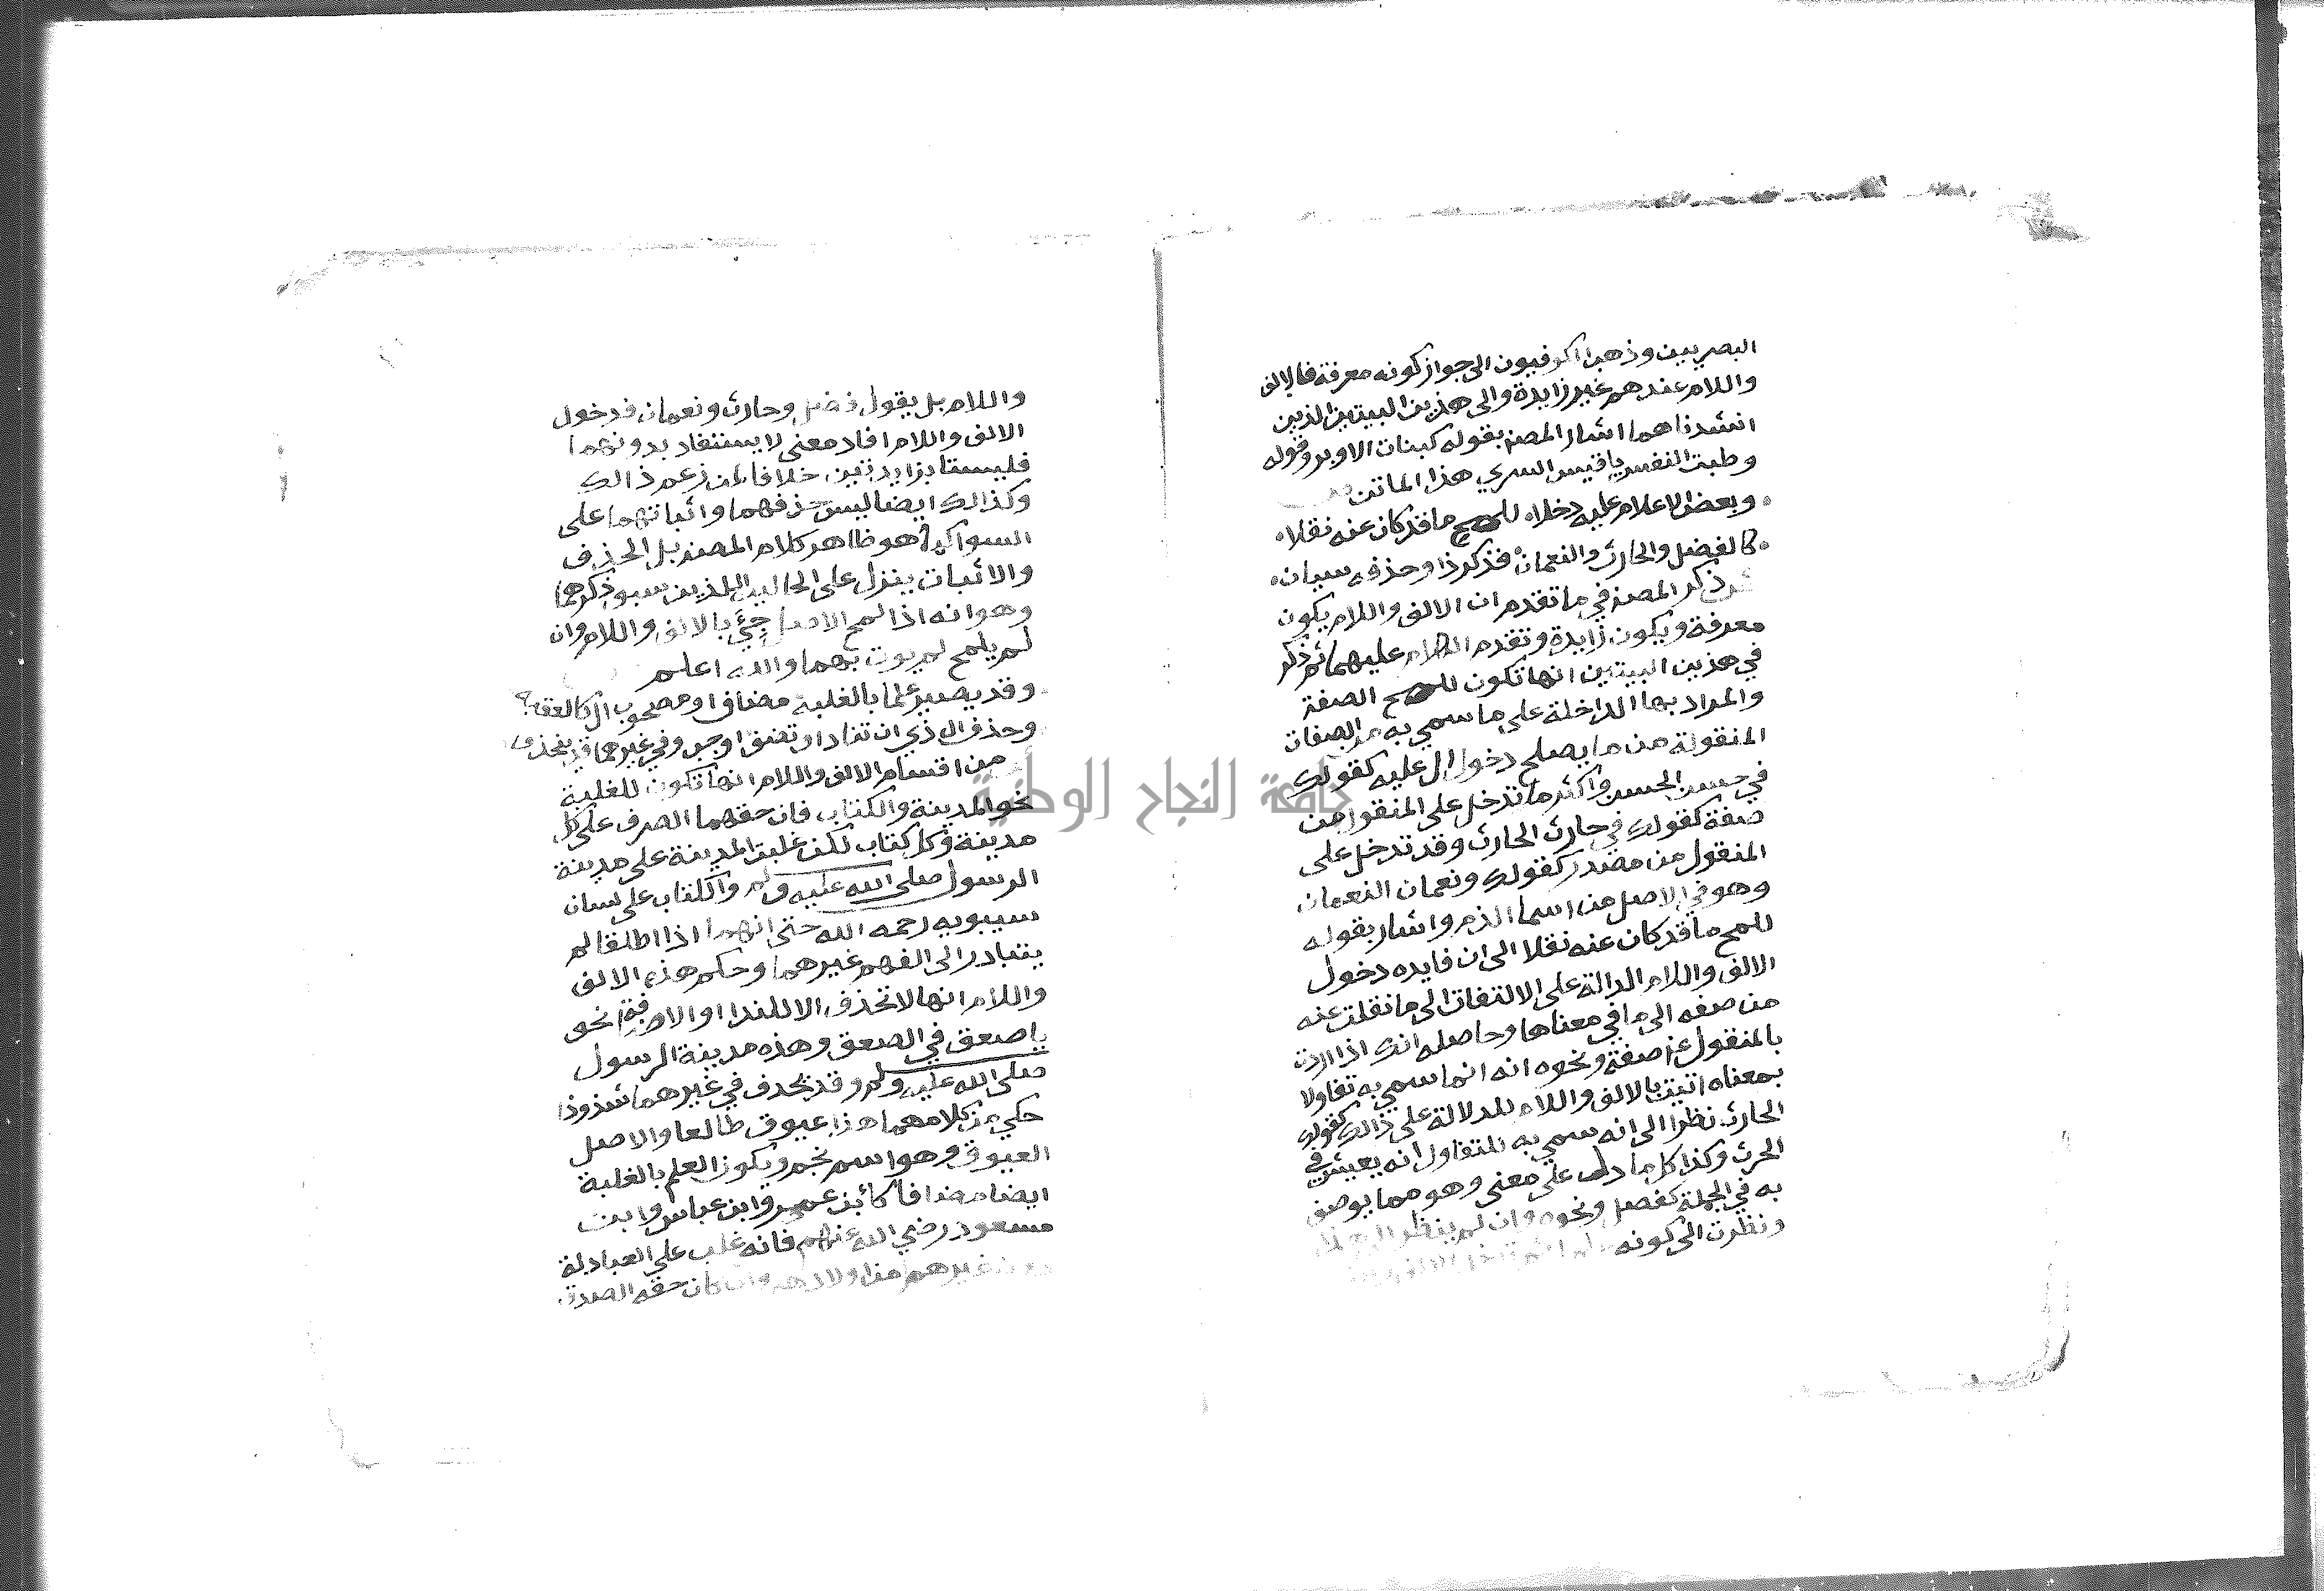 البصريين وذهب الكوفيون الى جواز كونه معرفة فالالف
واللام عندهم غير زايدة والى هذين البيتين الذين
انشدناهما اشار المصنف بقوله كبنات الاوبر وقوله
وطبت النفس يا قيس السري هذا الماتن
وبعض الاعلام عليه دخلا للمح ما قد كان عنه نقلا
كالفضل والحارث والنعمان فذكر ذا وحذفه سيان
ذكر المصنف في ما تقدم ان الالف واللام يكون
معرفة ويكون زايدة وتقدم الكلام عليهما ثم ذكر
في هذين البيتين انها تكون للمح الصفة
والمراد بها الداخلة على ما سمي به من الصفات
المنقولة من ما يصلح دخول ال عليه كقولك
في حسن الحسن واكثر ما تدخل على المنقول من
صفة كقولك في حارث الحارث وقد تدخل على
المنقول من مصدر كقولك ونعمان النعمان
وهو في الاصل من اسما الدم واشار بقوله
للمح ما قد كان عنه نقلا الى ان فايده دخول
الالف واللام الدالة على الالتفات الى ما نقلت عنه
من صفه الى ما في معناها وحاصله انك اذا اردت
بالمنقول عن صفة ونحوه انه انما سمي به تفاولا
بمعناه اتيت بالالف واللام للدلالة على ذالك كقولك
الحارث نظرا الى انه سمي به للتفاول انه يعيش في
الحرث وكذا كل ما دل على معنى وهو مما يوصف
به في الجملة كفضل ونحوه وان لم ينظر الى
ونظرت الى كونه
واللام بل يقول فضل وحارث ونعمان فدخول
الالف واللام افاد معنى لا يستفاد بدونهما
فليستا بزايدتين خلافا لمن زعم ذالك
وكذالك ايضا ليس حذفهما واثباتهما على
السوا كما هو ظاهر كلام المصنف بل الحذف
والاثبات ينزل على الحالين اللذين سبق ذكرهما
وهو انه اذا لمح الاصل جئ بالالف واللام وان
لم يلمح لم يوت بهما والله اعلم
وقد يصير علما بالغلبة مضاف او مصحوب ال كالعقبة
وحذف ال ذي ان تناد او تضف اوجب وفي غيرهما قد ينحذف
من اقسام الالف واللام انها تكون للغلبة
نحو المدينة والكتاب فان حقهما الصرف على كل
مدينة وكل كتاب لكن غلبت المدينة على مدينة
الرسول صلى الله عليه ولم والكتاب على لسان
سيبويه رحمه الله حتى انهما اذا اطلقا لم
يتبادر الى الفهم غيرهما وحكم هذه الالف
واللام انها لا تحذف الا للندا او الاضافة نحو
يا صعق في الصعق وهذه مدينة الرسول
صلى الله عليه ولم وقد يحذف في غيرهما شذوذا
حكي من كلامهم هذا عيوق طالعا والاصل
العيوق وهو اسم نجم ويكون العلم بالغلبة
ايضا مضافا كابن عمر وابن عباس وابن
مسعود رضي الله عنهم فانه غلب على العبادلة
دون غيرهم من اولادهم وان كان حقه الصدق
جامعة النجاح الوطنية